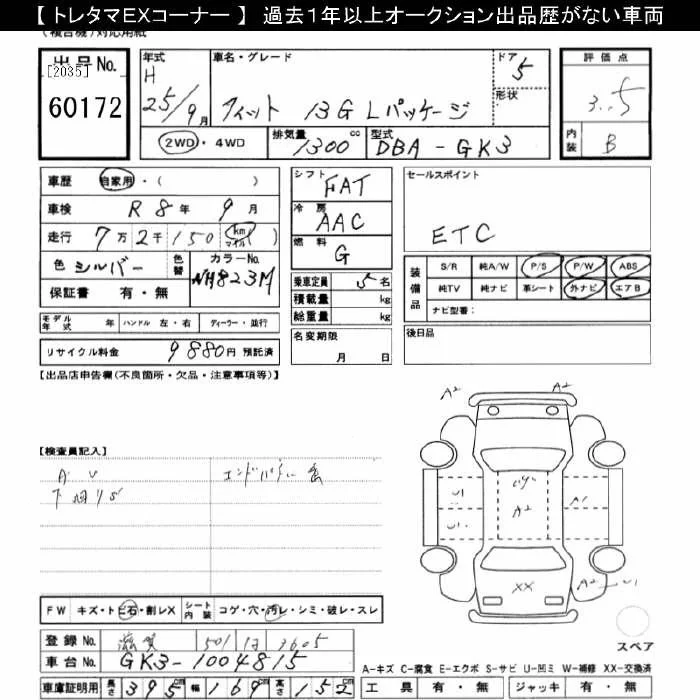 【 トレタマEXコーナー 】 過去1年以上オークション出品歴がない車両
(複合機)対応用紙
出品No.
[2035]
60172
年式 車名・グレード ドア 5
H
25/9月 フィット 13G Lパッケージ 形状
2WD・4WD 排気量 1300 cc 型式 DBA-GK3
評価点
3.5
内装 B
車歴 自家用・( )
車検 R8年 9月
走行 7万2千150 (km マイル)
色 シルバー 色替 カラーNo. NH823M
保証書 有・無
シフト FAT
冷房 AAC
燃料 G
乗車定員 5名
積載量 kg
総重量 kg
セールスポイント
ETC
装備品 S/R 純A/W P/S P/W ABS
純TV 純ナビ 革シート 外ナビ エアB
ナビ型番:
モデル年式 年 ハンドル 左・右 ディーラー・並行
名変期限
月 日
後日品
リサイクル料金 9880円 預託済
【出品店申告欄(不良箇所・欠品・注意事項等)】
A2 A2
【検査員記入】
A U
エンドパネル
U1 A1
A2
U1
XX
A2 U1
FW キズ・トビ石・割レX シート内装 コゲ・穴・汚レ・シミ・破レ・スレ
スペア
登録No. 滋賀 501 3605
車台No. GK3-1004815
A-キズ C-腐食 E-エクボ S-サビ U-凹ミ W-補修 XX-交換済
車庫証明用 長さ 395cm 幅 169cm 高さ 152cm
工具 有・無 ジャッキ 有・無